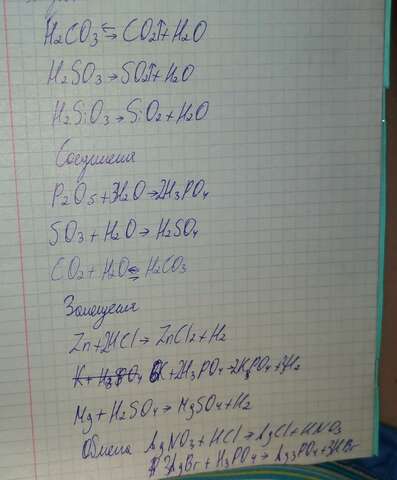 H₂CO₃ ⇆ CO₂↑ + H₂O
H₂SO₃ → SO₂↑ + H₂O
H₂SiO₃ → SiO₂ + H₂O
Соединения
P₂O₅ + 3H₂O → 2H₃PO₄
SO₃ + H₂O → H₂SO₄
CO₂ + H₂O ⇆ H₂CO₃
Замещения
Zn + 2HCl → ZnCl₂ + H₂
6K + 2H₃PO₄ → 2K₃PO₄ + 3H₂
Mg + H₂SO₄ → MgSO₄ + H₂
Обмена AgNO₃ + HCl → AgCl + HNO₃
3AgBr + H₃PO₄ → Ag₃PO₄ + 3HBr